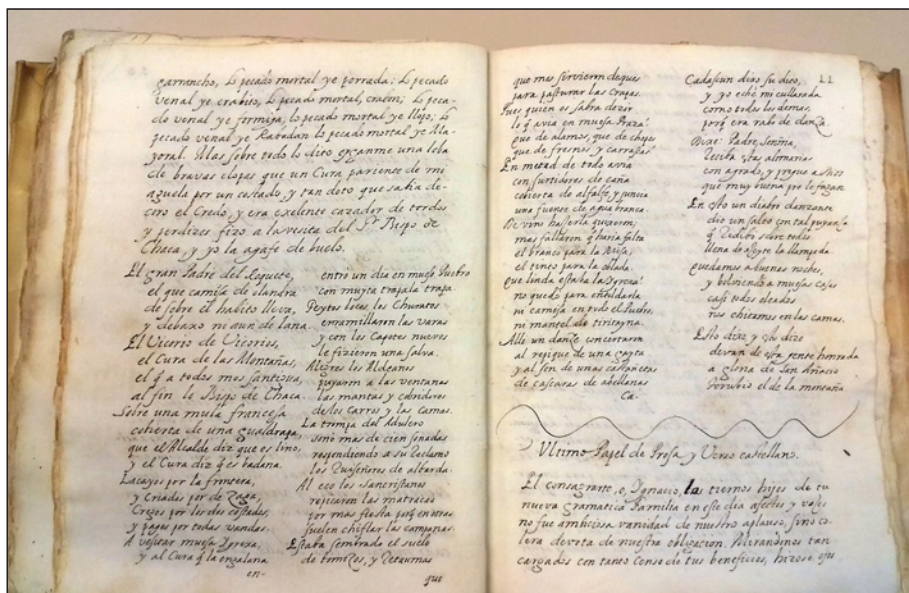 garrancho, lo pecado mortal ye porrada; lo pecado
venal ye crabito, lo pecado mortal, crabon; lo peca-
do venal ye formija, lo pecado mortal ye llop; lo
pecado venal ye Rabadan lo pecado mortal ye Ma-
yoral. Mas sobre todo lo dito oyganme una loba
de bravas clopas que un Cura pariente de mi
aguela por un costado, y tan doto que sabia de-
cero el Credo, y era exelente cazador de tordos
y perdizes fizo a la vesita del Sr. Bispo de
Chaca, y yo la agafe de buelo.
El gran Padre del Roquete,
el que camisa de olandra
de sobre el habito lleva,
y debaxo ni aun de lana.
El Vicorio de Vicorios,
el Cura de las Montañas,
el q̃ a todos mos santigua,
al fin lo Bispo de Chaca.
Sobre una mula francesa
cubierta de una gualdrapa,
que el Alcalde diz que es lino,
y el Cura diz q̃ es badana.
Lacayos por la frontera,
y Criados por de Zaga,
Cregos por los dos costados,
y pages por todas vandas.
A vesitar muesa Igresa,
y al Cura q̃ la engalana
en-
entró un dia en mueso Puebro
con muyta trapala trapa.
los Churatos
enramillaron las varas
y con los Capotes nuevos
le fizieron una salva.
Alegres los Aldeanos
puyaron a las ventanas
las mantas y cubridores
de los carros y las camas.
La trompa del Adulero
sonó mas de cien sonadas
respondiendo a su Reclamo
los Ruiseñores de albarda.
Al eco los Sancristanes
repicaron las matracas
por mas fiesta
suelen chiflar las campanas.
Estaba sombrado el suelo
de tomizos, y retaumas
que
11
que mos sirvieron dequés
para pasturar las crapas.
Pues quien os sabra dezir
lo q̃ avia en muesa Praza?
que de alamos, que de chopos
que de fresnos y carrascas
En metad de todo avia
con surtidores de caña
cubierta de alfalze, y juncia
una fuente de agua branca.
De vino hazerla quisieron;
mas fallaron q̃ haria falta
el branco para la Missa,
el tinto para la colada.
Que linda estaba la Igresia!
no quedó para endoldarla
ni camisa en todo el Pueblo,
ni mantel de tiritayna.
Alli un dance concertaron
al repique de una gayta
y al son de unas castañetas
de cascaras de abellanas
Ca-
Cadascun dizo su dito,
y yo eché mi cullarada
como todos los demas,
porq̃ era rabo de danza.
Dixe: Padre, Señoria,
reciba estas alimarias
con agrado, y pregue a Dios
que muy buena pro le fagan
En esto un diabro danzante
dio un salto con tal puxanza
q̃ redibó sobre todos
llena de oleyte la llampeda
Quedamos a buenas noches,
y bolviendo a muesas casas
casi todos oleados
nos chitemos en las camas.
Esto dize y lo dizo
devan de esta gente honrada
a gloria de San Inacio
el de la montaña
Ultimo Papel de Prosa y Verso castellano.
El consagrarte, o, Ignacio, los tiernos hijos de tu
nueva Gramatica Familia en este dia afectos y vozes
no fue ambiciosa vanidad de nuestro aplauso, sino co-
lera devota de nuestra obligacion. Mirandonos tan
cargados con tanto censo de tus beneficios, hizose